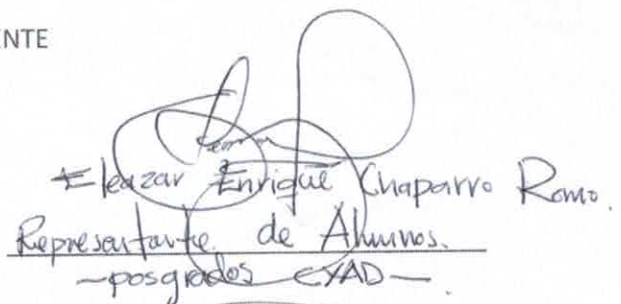 ENTE
Eleazar Enrique Chaparro Romo.
Representante de Alumnos.
-posgrados CYAD-.